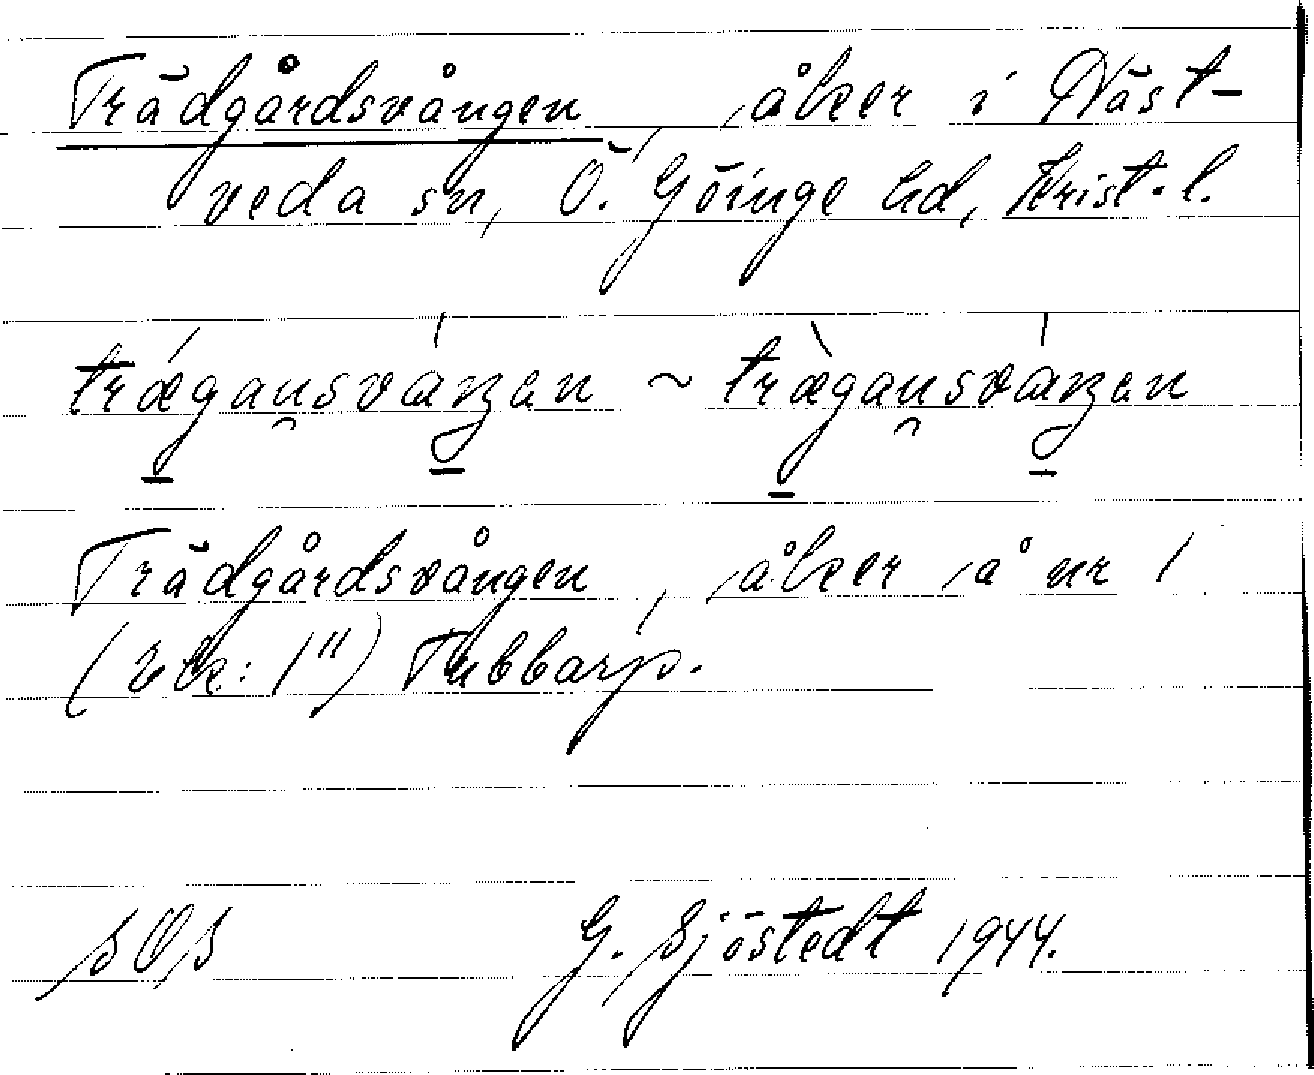 Trädgårdsvången, åker i Näst-
veda sn, Ö. Göinge hd, Krist. l.
trǽgansváŋən ~ trægansváŋən
Trädgårdsvången, åker å nr 1
(ek: 1") Tubbarp.
sOs G. Sjöstedt 1944.